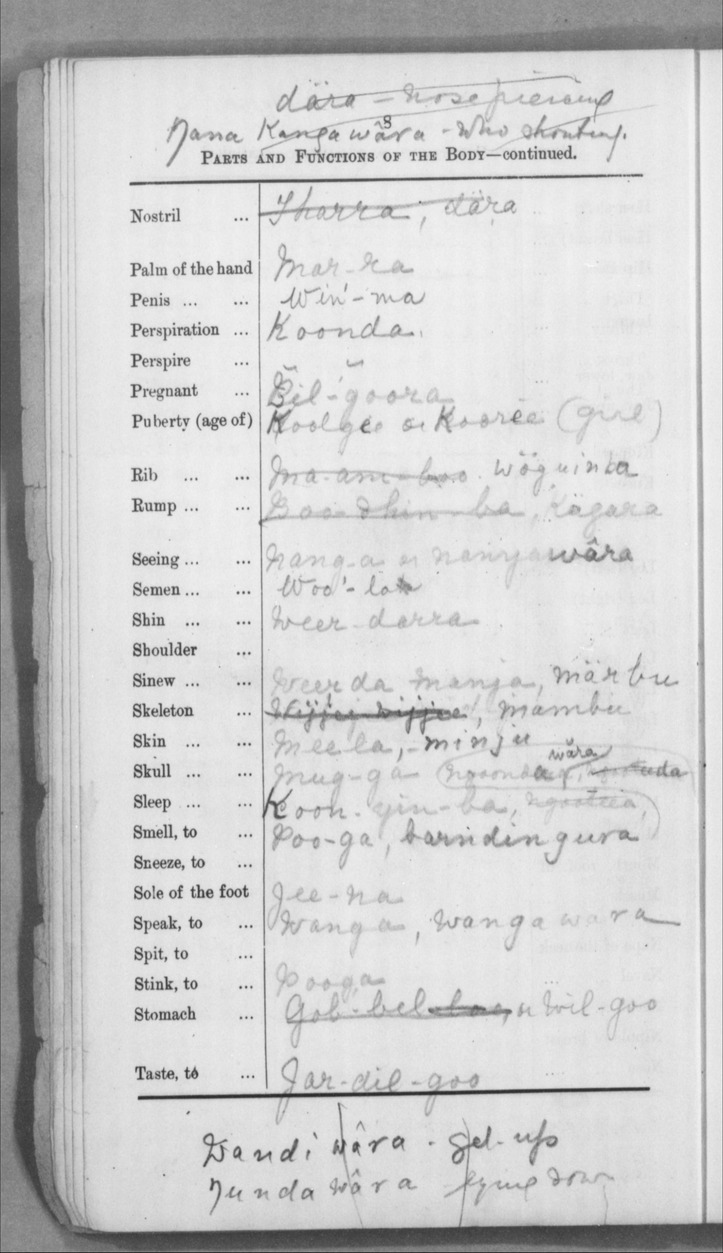 dära - nose piercing
Ŋana Kangawâra - Who shouting.
8
PARTS AND FUNCTIONS OF THE BODY—continued.
Nostril ... Tharra, dära
Palm of the hand Mar-ra
Penis ... ... Win'-ma
Perspiration ... Koonda.
Perspire ...
Pregnant ... Bil-goora
Puberty (age of) Koolgee or Kooree (girl)
Rib ... ... Ma-am-boo. wöguinba
Rump ... ... Boo-dhin-ba, Kägara
Seeing ... ... nang-a or nanyawâra
Semen ... ... Woo'-loo
Shin ... ... Weer-darra
Shoulder ...
Sinew ... ... Weerda manja, märbu
Skeleton ... Wijjee wijjee, mambu
Skin ... ... Meela, minju
Skull ... ... Mug-ga wära
Sleep ... ... Koon-yin-ba,
Smell, to ... Poo-ga, barndingura
Sneeze, to ...
Sole of the foot Jee-na
Speak, to ... Wanga, wangawara
Spit, to ...
Stink, to ... Pooga
Stomach ... Gob-bel-loo, or Wil-goo
Taste, to ... Jar-dil-goo
Wandi wâra - get-up
Ŋunda wâra lying down